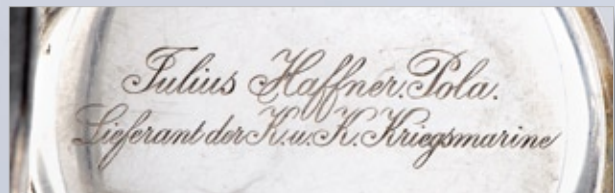 Julius Haffner. Pola.
Lieferant der K.u.K. Kriegsmarine